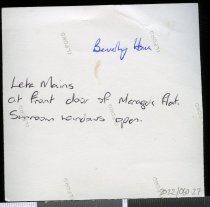 Beverley Hou
Letz Mains
at front door of Manager's Flat.
Sunroom windows open.
ILFORD
2022/050 27